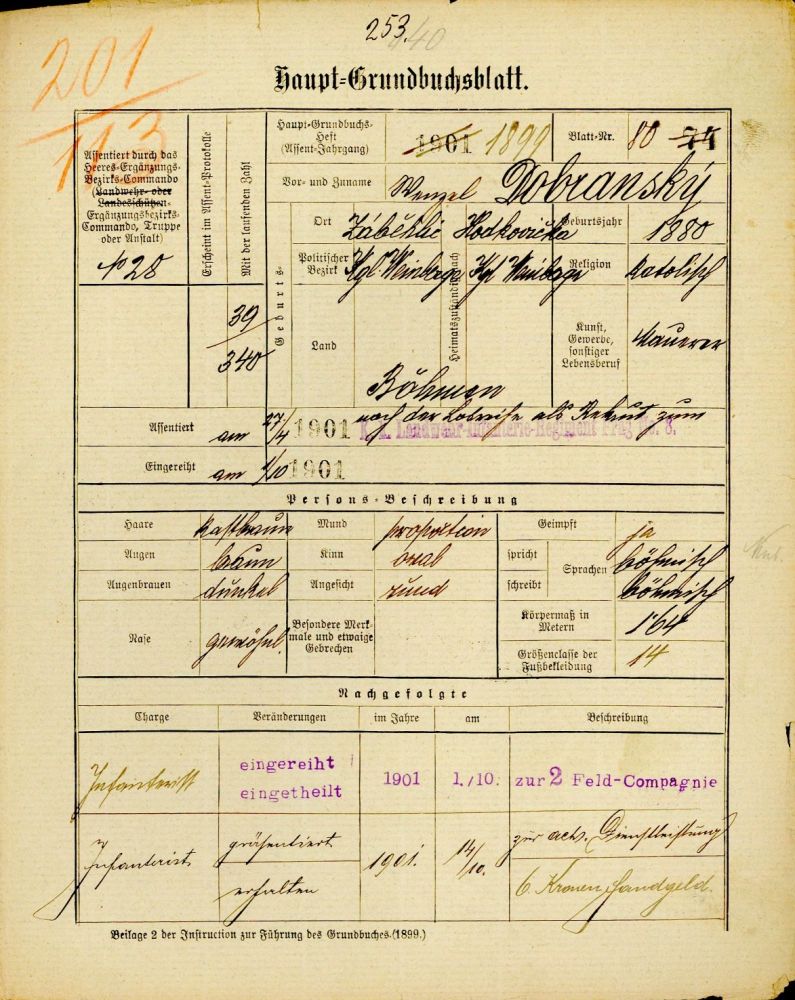 253.
440
201
113
Haupt-Grundbuchsblatt.
Assentiert durch das
Heeres-Ergänzungs-
Bezirks-Commando
(Landwehr- oder
Landesschützen-
Ergänzungsbezirks-
Commando, Truppe
oder Anstalt)
No 28
Erscheint im Assent-Protokolle
Mit der laufenden Zahl
39
340
Haupt-Grundbuchs-
Heft
(Assent-Jahrgang)
1901 1899
Blatt-Nr.
80 74
Vor- und Zuname
Wenzel Dobranský
Geburts-
Ort
Záběhlic
Heimatszuständig nach
Hodkovička
Geburtsjahr
1880
Politischer
Bezirk
Kgl Weinberge
Kgl Weinberge
Religion
katolisch
Land
Böhmen
Kunst,
Gewerbe,
sonstiger
Lebensberuf
Maurer
Assentiert
am 27/4 1901 nach der Losreihe als Rekrut zum
k. k. Landwehr-Infanterie-Regiment Prag No. 8.
Eingereiht
am 1/10 1901
Persons-Beschreibung
Haare kastbraun Mund proportion Geimpft ja
Augen braun Kinn oval spricht Sprachen böhmisch
Augenbrauen dunkel Angesicht rund schreibt böhmisch
Nase gewöhnl. Besondere Merk-
male und etwaige
Gebrechen
Körpermaß in
Metern
1·64
Größenclasse der
Fußbekleidung
14
Nachgefolgte
Charge Veränderungen im Jahre am Beschreibung
Infanterist eingereiht
eingetheilt 1901 1./10. zur 2 Feld-Compagnie
Infanterist präsentiert 1901. 14/10. zur act. Dienstleistung
erhalten 6 Kronen Handgeld.
Beilage 2 der Instruction zur Führung des Grundbuches. (1899.)